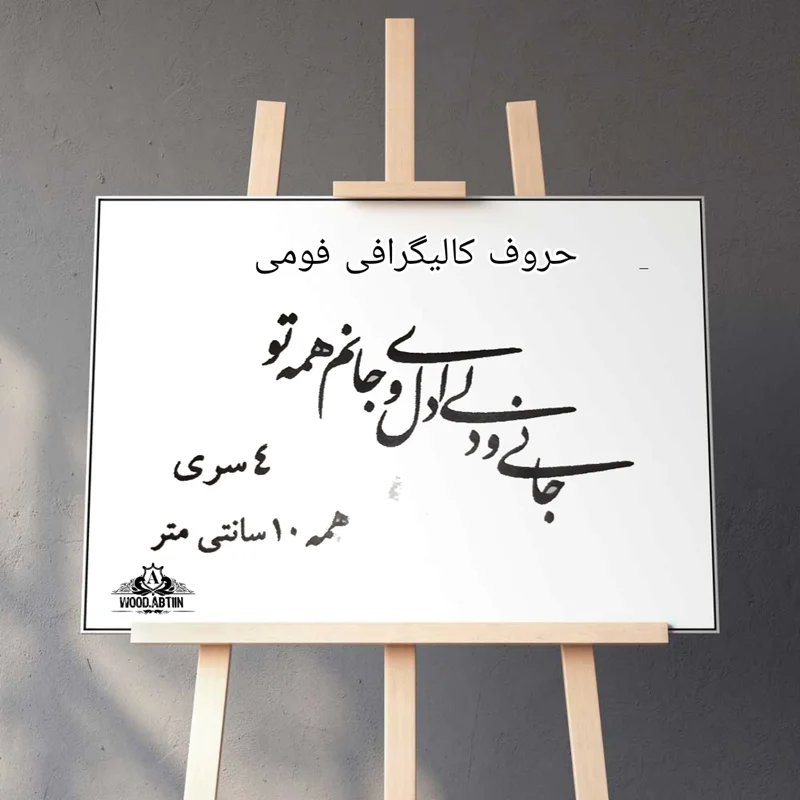 حروف کالیگرافی فومی
جانی و دلی ای دل و جانم همه تو
٤ سری
همه ١٠ سانتی متر
A
WOOD.ABTIIN